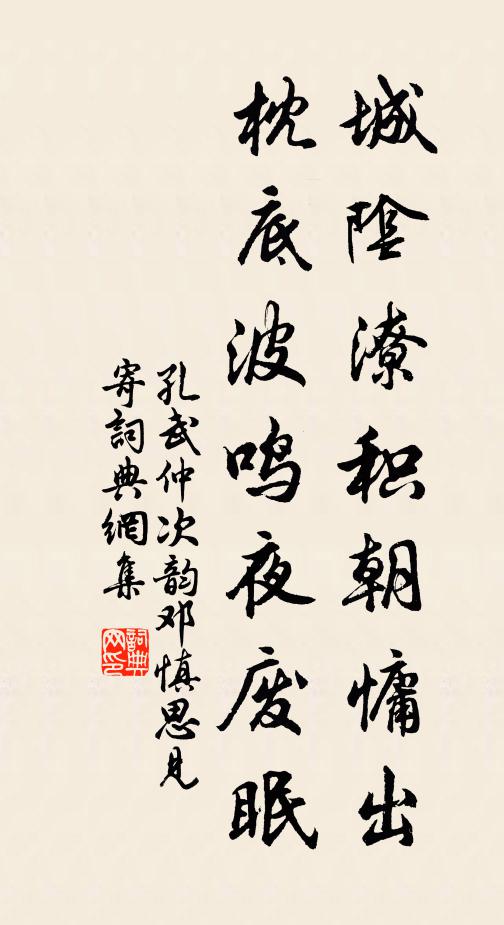 城陰潦积朝慵出
枕底波鸣夜废眠
孔武仲次韵邓慎思见
寄詞典網集
詞典网印